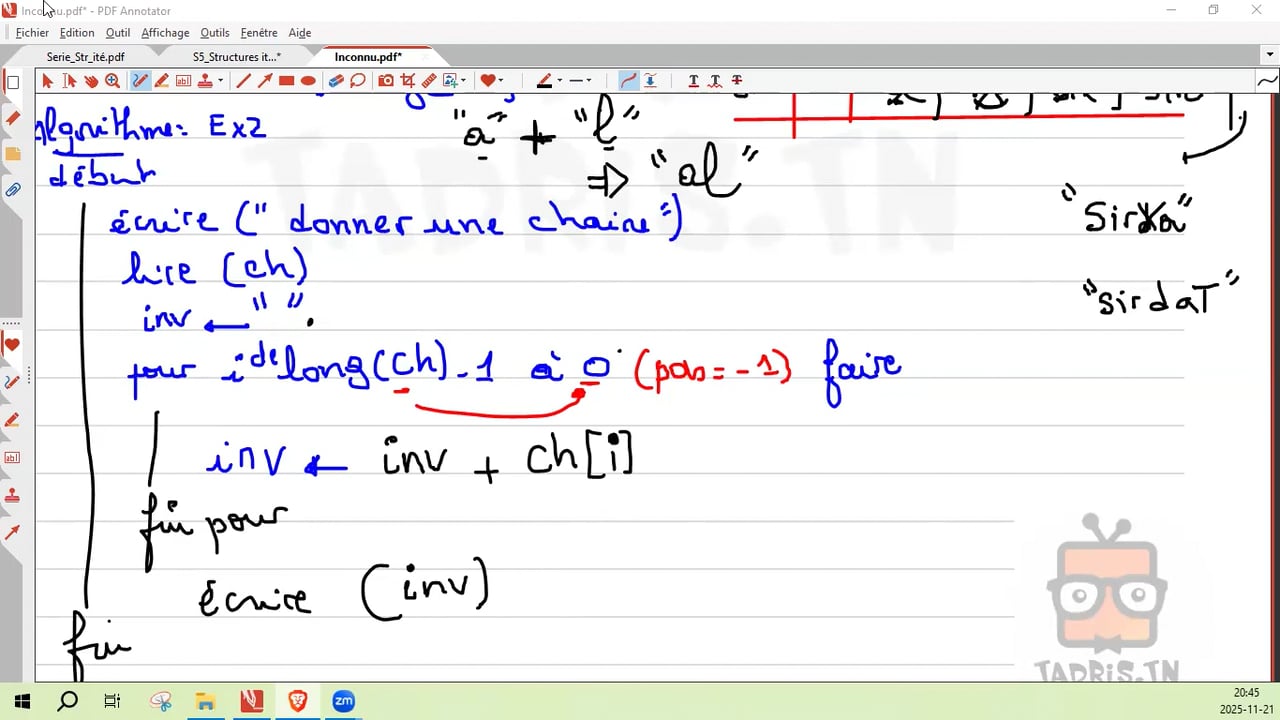 Inconnu.pdf* - PDF Annotator
Fichier Edition Outil Affichage Outils Fenêtre Aide
Serie_Str_ité.pdf S5_Structures it...* Inconnu.pdf*
Algorithme: Ex2
"a" + "l"
=> "al"
début
écrire (" donner une chaine")
lire (ch)
inv ← " "
pour i de long(ch)-1 à 0 (pas = -1) faire
inv ← inv + ch[i]
fin pour
écrire (inv)
fin
"sirdaT"
TADRIS.TN
TADRiS.TN
20:45
2025-11-21